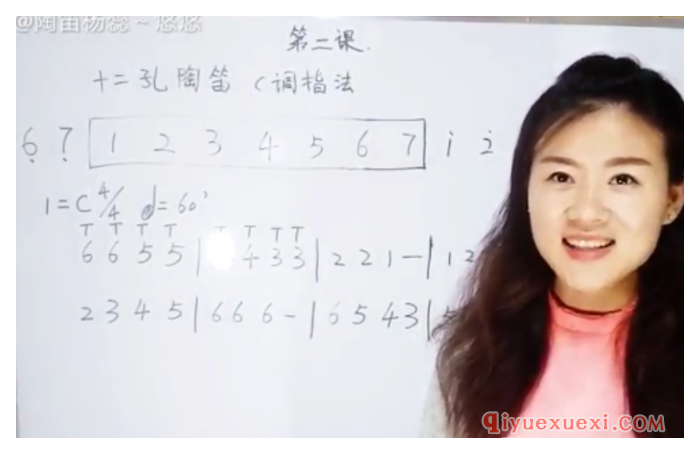 @陶笛杨蕊~悠悠
第二课.
十二孔陶笛 (调指法
6 7 1 2 3 4 5 6 7 i 2
1=C 4/4 =60
T T T T T T T T
6 6 5 5 | 4 3 3 | 2 2 1 — | 1 2
2 3 4 5 | 6 6 6 - | 6 5 4 3 |
qiyuexuexi.com